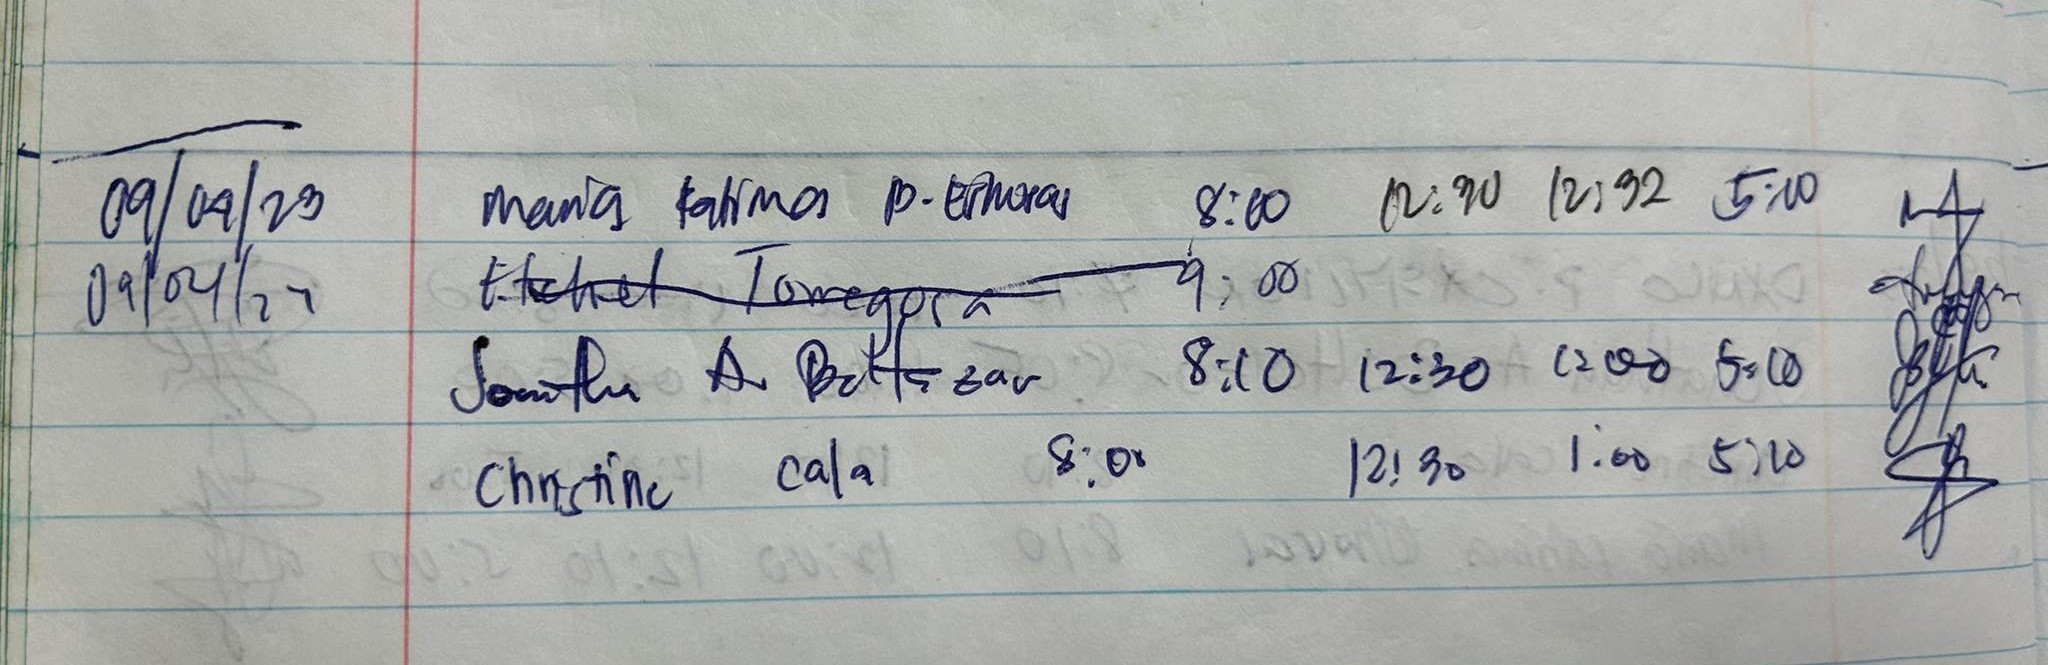 09/04/23 Maria Fatima D. 8:00 12:30 12:32 5:00
09/04/23 Etchel Torregosa 9:00
A. Baltazar 8:10 12:30 5:00
Christine Cala 8:00 12:30 1:00 5:00